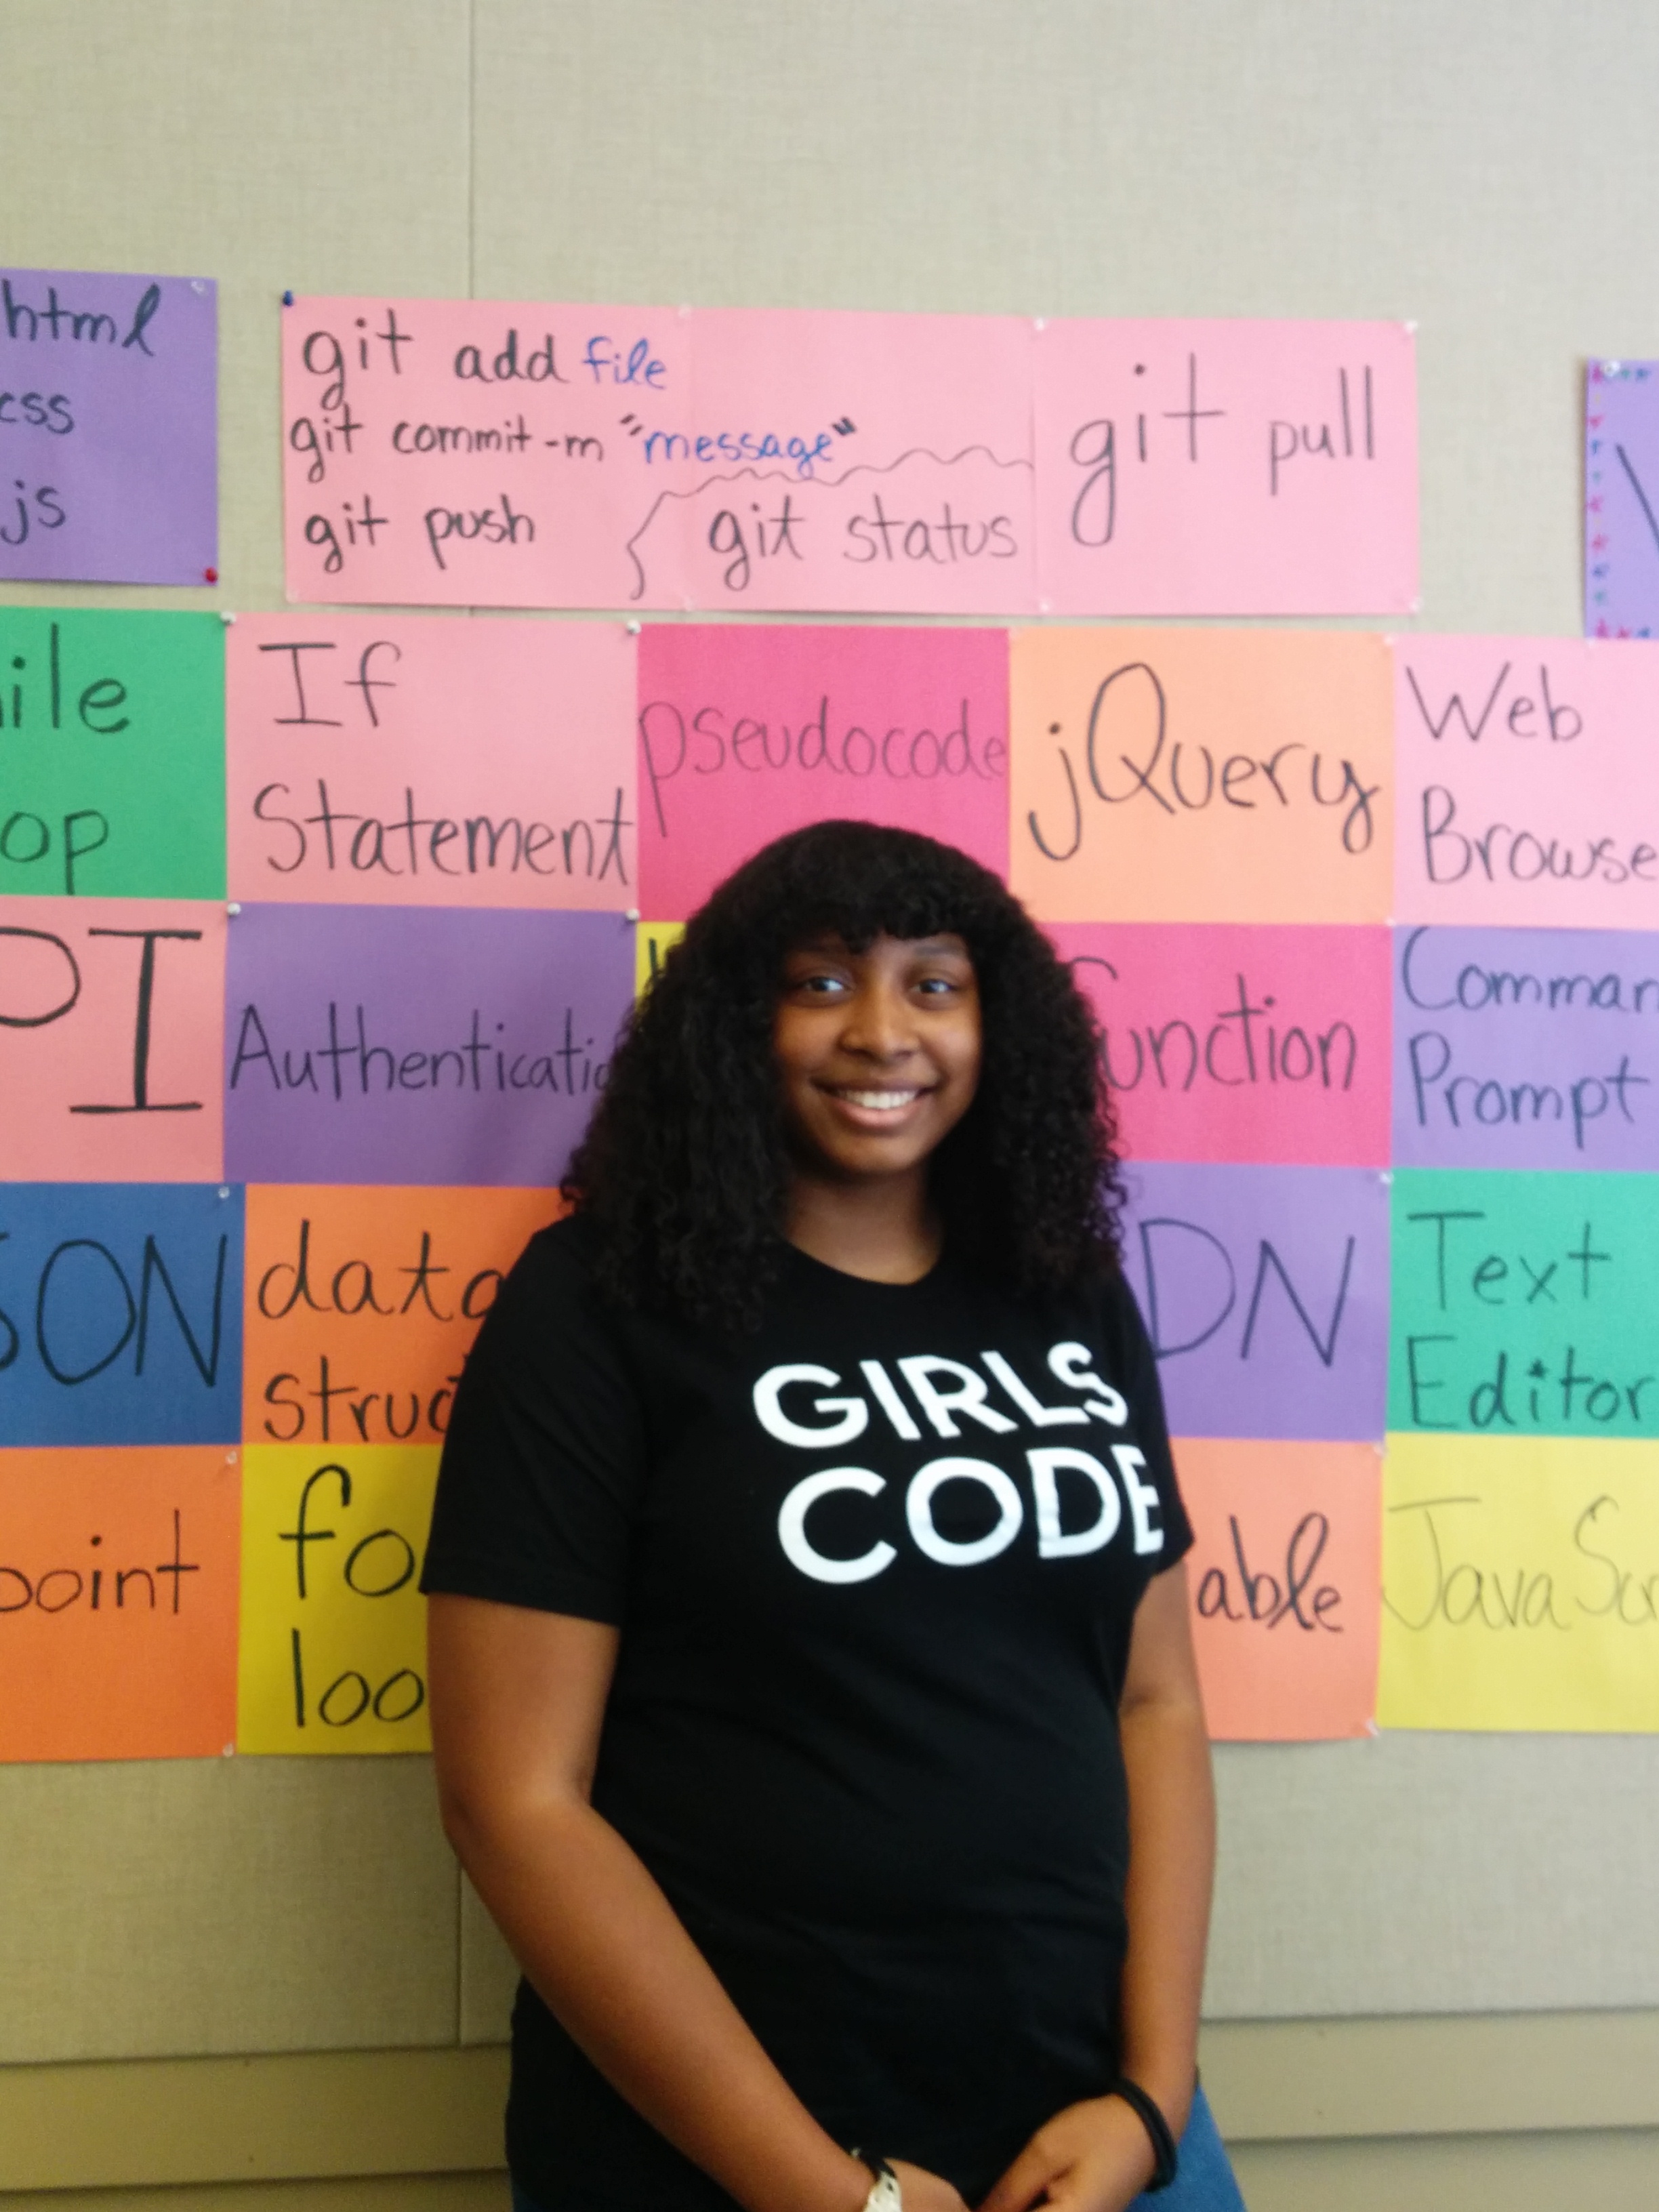 html
css
js
git add file
git commit -m "message"
git push
git status
git pull
ile
op
If
Statement
pseudocode
jQuery
Web
Browse
PI
Authenticatio
unction
Comman
Prompt
SON
data
struc
DN
Text
Editor
point
fo
loo
able
JavaScr
GIRLS
CODE